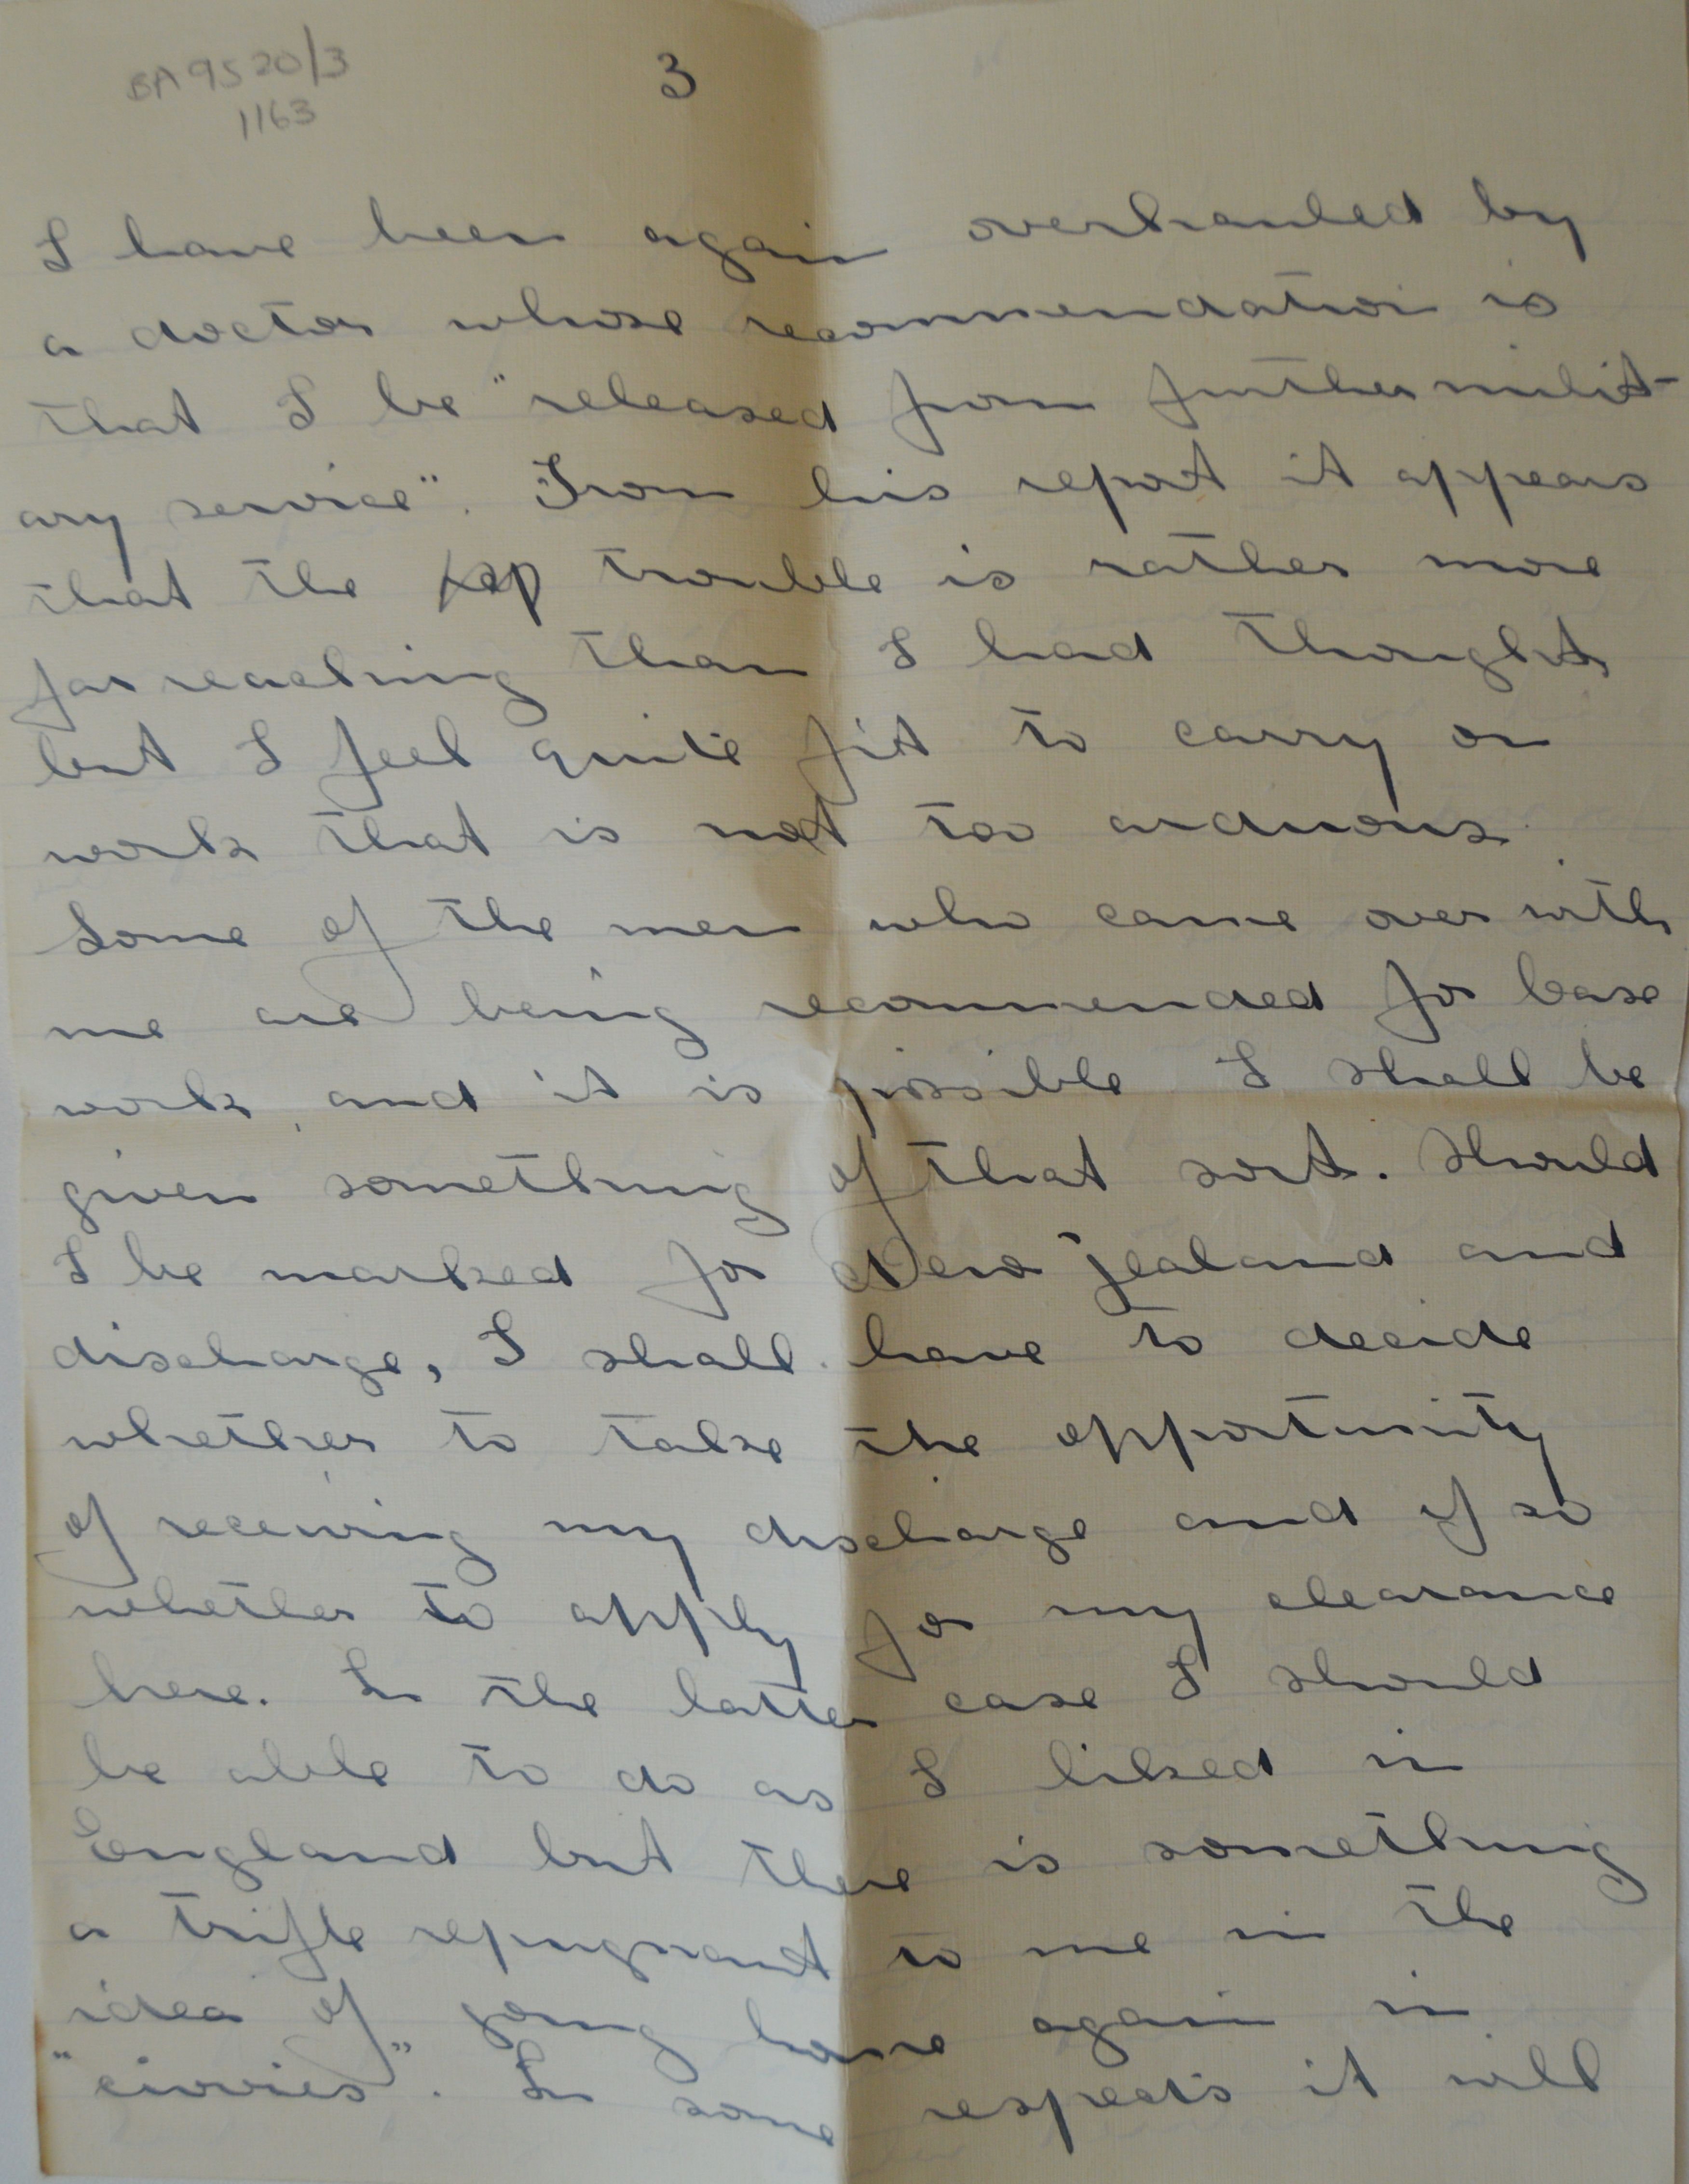 BA 9520/3
1163
3
I have been again overhauled by
a doctor whose recommendation is
that I be "released from further milit-
ary service". From his report it appears
that the trouble is rather more
far reaching than I had thought
but I feel quite fit to carry on
work that is not too arduous.
Some of the men who came over with
me are being recommended for base
work, and it is possible I shall be
given something of that sort. Should
I be marked for New Zealand and
discharge, I shall have to decide
whether to take the opportunity
of receiving my discharge and if so
whether to apply for my clearance
here. In the latter case I should
be able to do as I liked in
England but there is something
a trifle repugnant to me in the
idea of going home again in
"civvies". In some respects it will